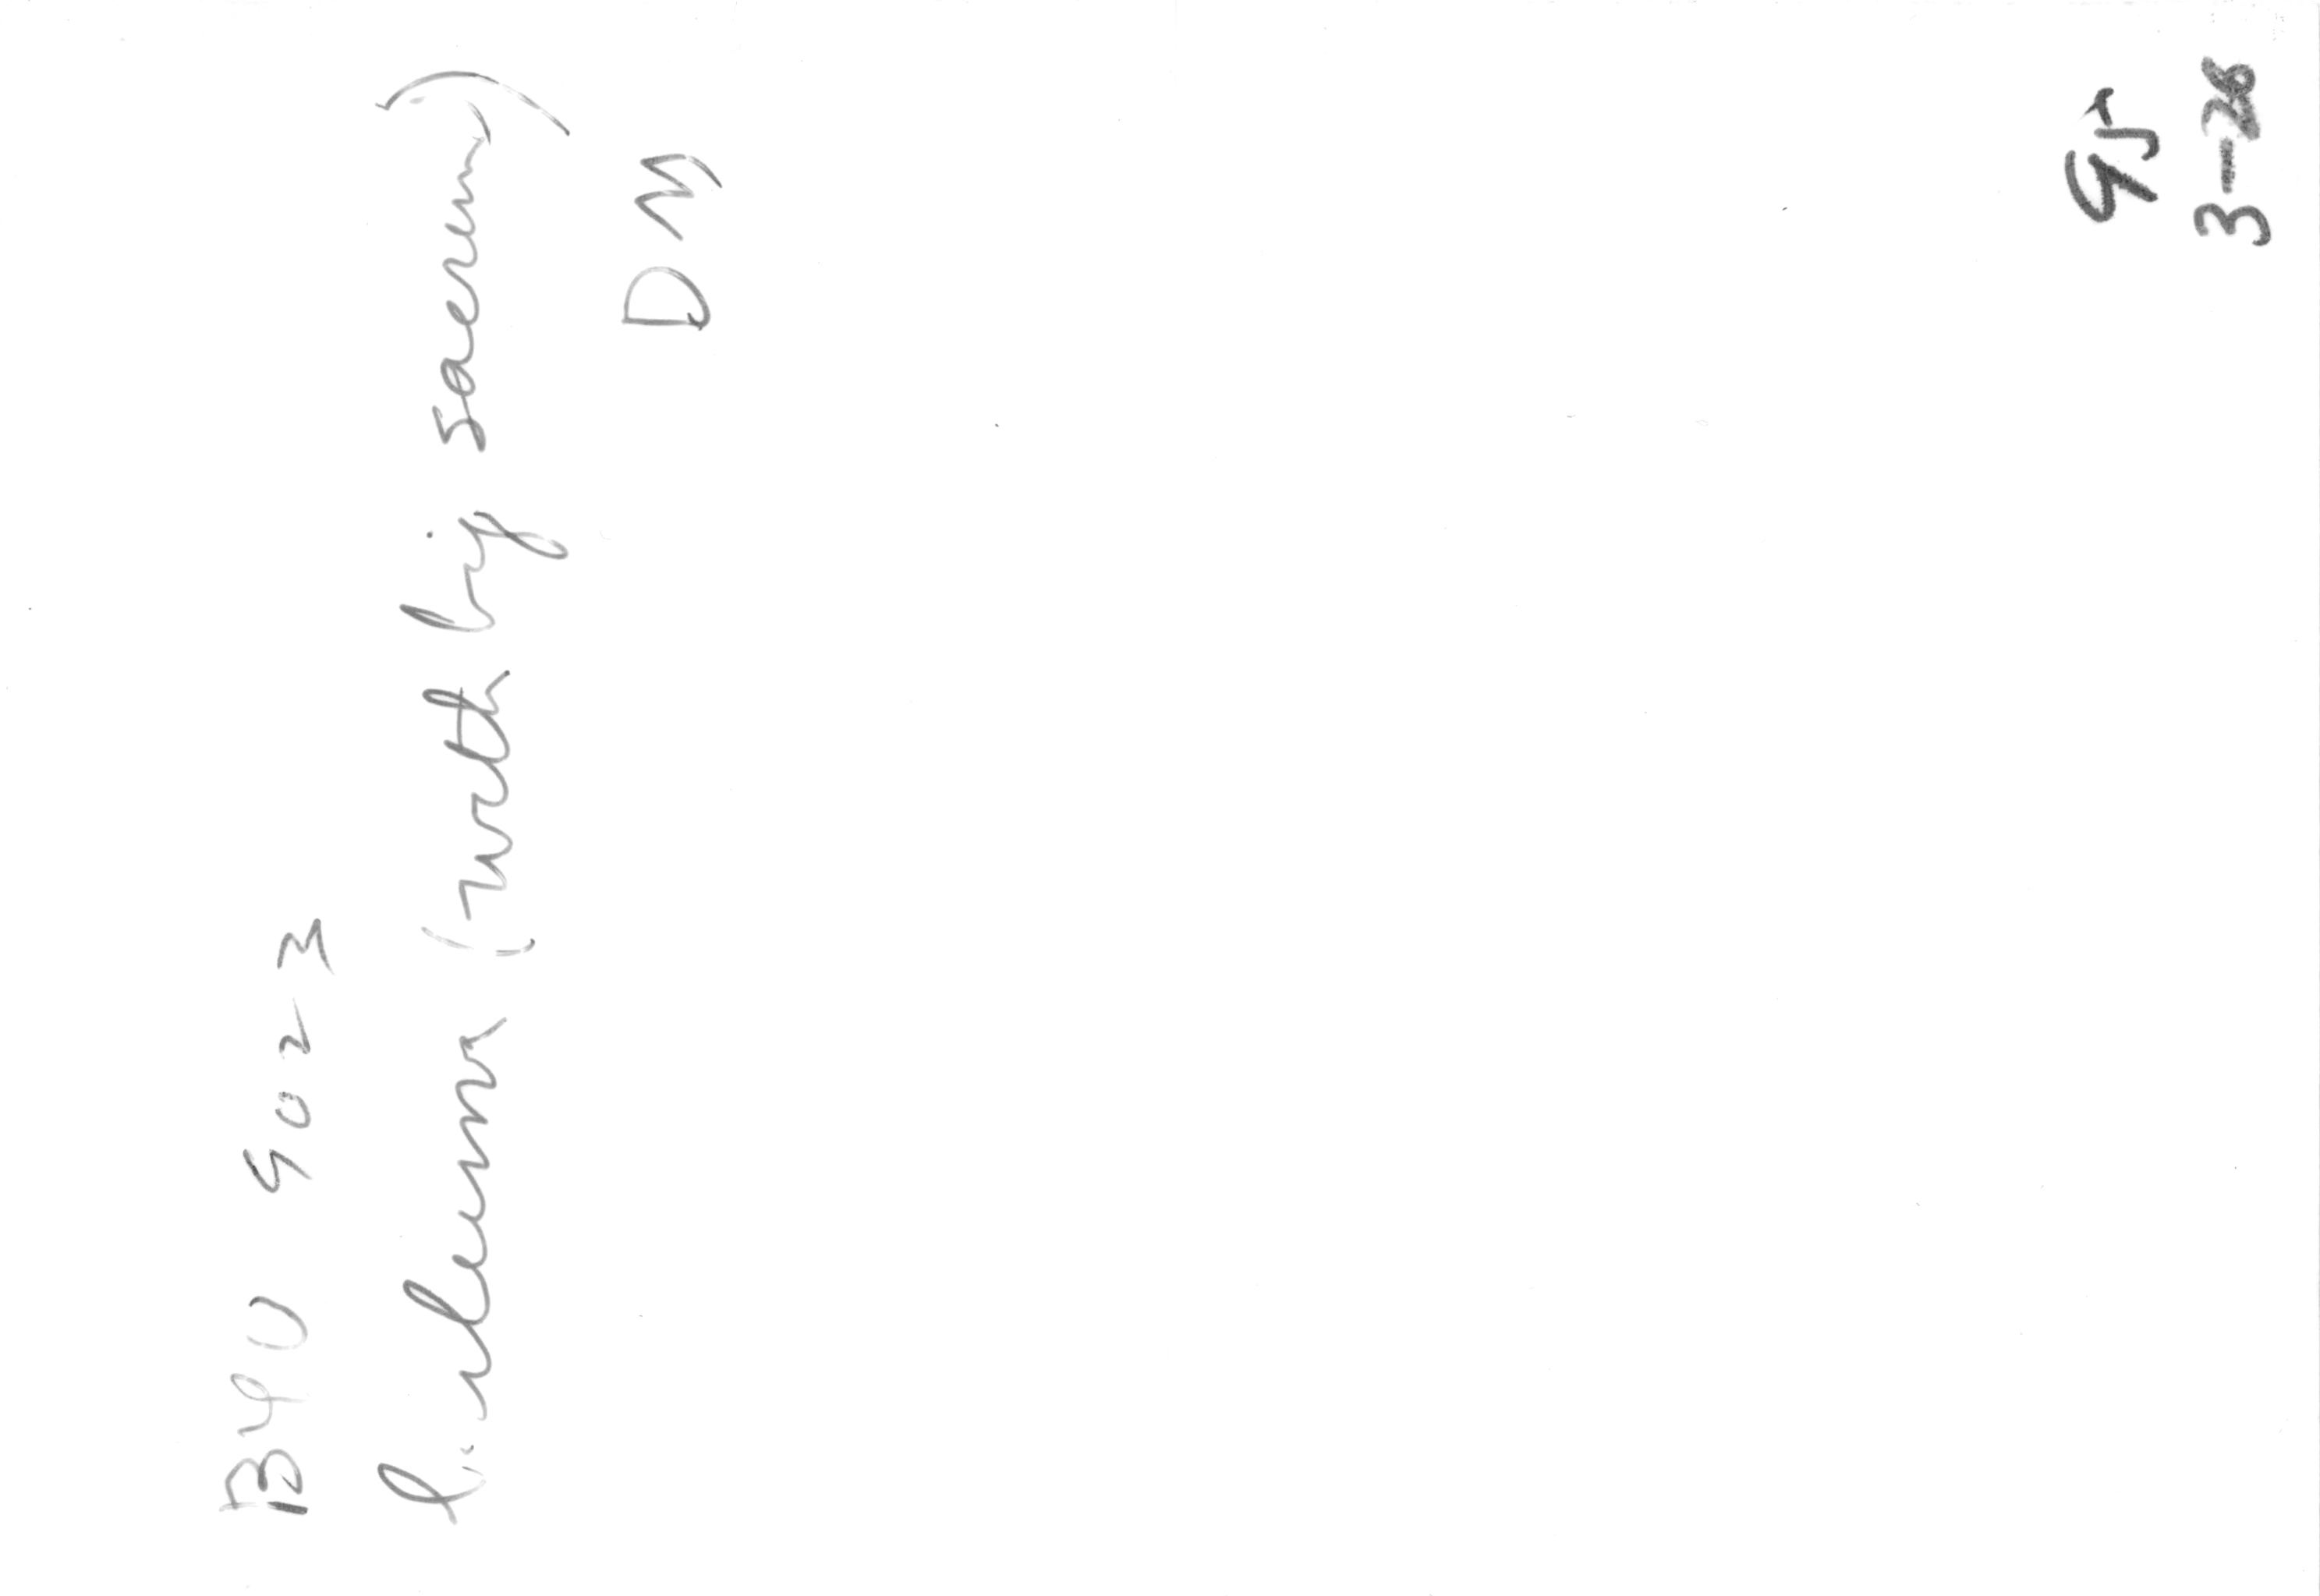 BYU 9023
l. ilium (with big sacrum)
DM
95
3-26